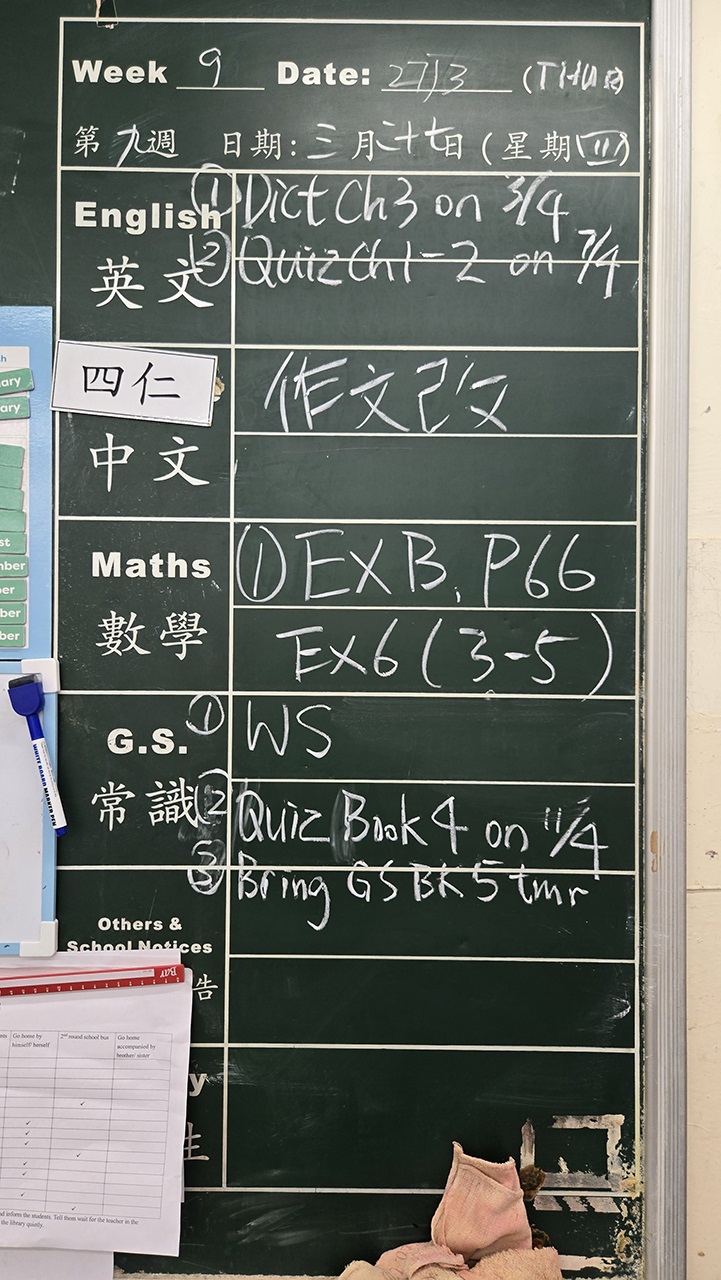 Week 9 Date: 27/3 (THUR)
第九週 日期: 三月二十七日 (星期四)
English
① Dict Ch3 on 3/4
英文
② Quiz Ch1-2 on 7/4
四仁
中文
作文改
Maths
① EXB, P66
數學
EX6 (3-5)
G.S.
① WS
常識
② Quiz Book 4 on 11/4
③ Bring GS BK 5 tmr
Others &
School Notices
告
y
生
WHITE BOARD MARKER PEN
Bar
Go home by himself/ herself
2nd round school bus
Go home accompanied by brother/ sister
inform the students. Tell them wait for the teacher in the
the library quietly.